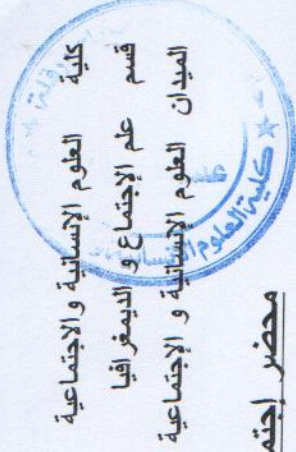 كلية العلوم الإنسانية والاجتماعية
قسم علم الإجتماع و الديمغرافيا
الميدان العلوم الإنسانية و الإجتماعية
محضر إجتم
كلية العلوم